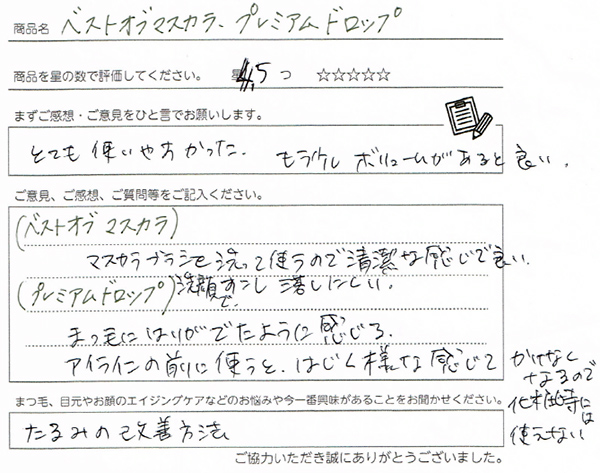 商品名 ベストオブマスカラ、プレミアムドロップ
商品を星の数で評価してください。 星4.5つ ☆☆☆☆☆
まずご感想・ご意見をひと言でお願いします。
とても使いやすかった。 もう少しボリュームがあると良い。
ご意見、ご感想、ご質問等をご記入ください。
(ベストオブマスカラ)
マスカラブラシを洗って使うので清潔な感じで良い。
(プレミアムドロップ)洗顔ですこし落しにくい。
まつ毛にはりがでたように感じる。
アイラインの前に使うと、はじく様な感じで
かけなく
なるので
化粧時に
は
使えない
まつ毛、目元やお顔のエイジングケアなどのお悩みや今一番興味があることをお聞かせください。
たるみの改善方法
ご協力いただき誠にありがとうございました。